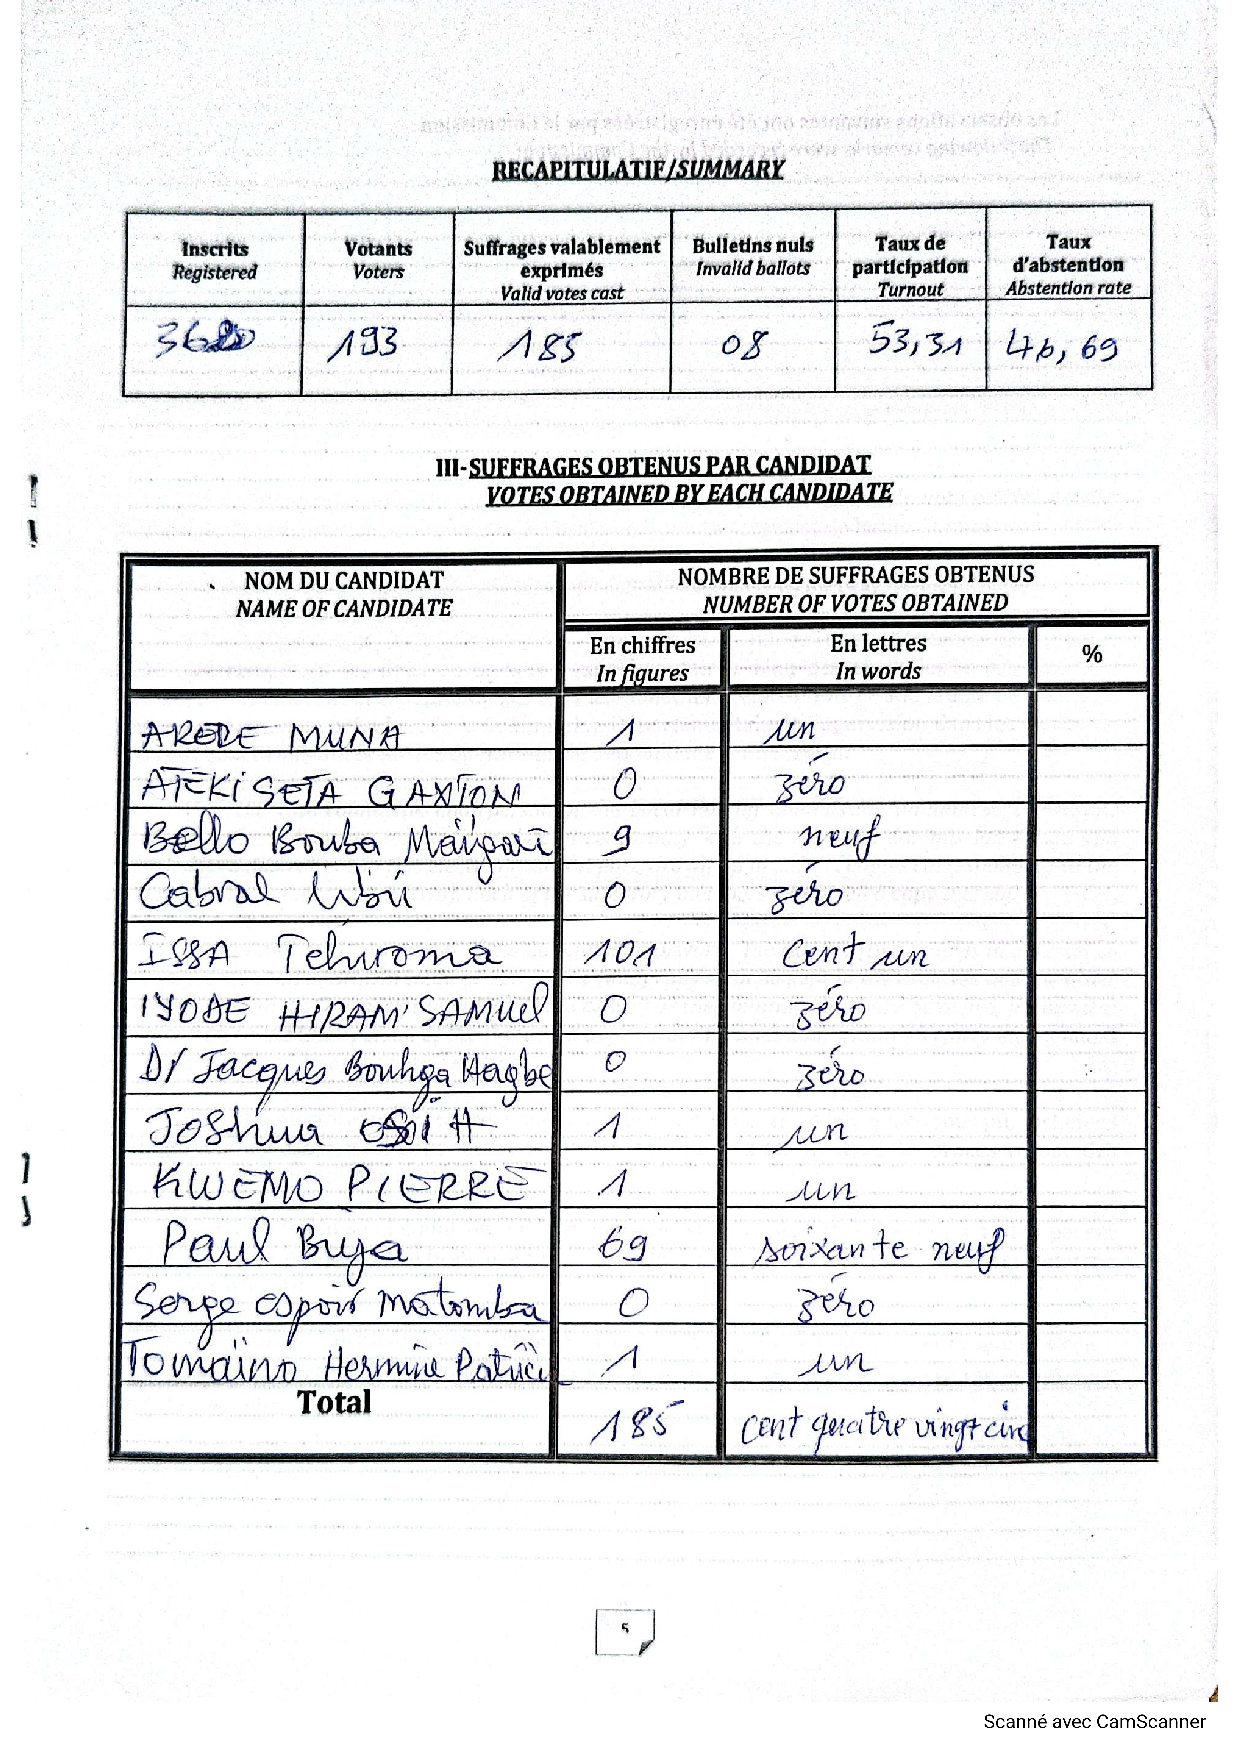 RECAPITULATIF/SUMMARY
Inscrits Registered
Votants Voters
Suffrages valablement exprimés Valid votes cast
Bulletins nuls Invalid ballots
Taux de participation Turnout
Taux d'abstention Abstention rate
193 185 08 53,31 46,69
III-SUFFRAGES OBTENUS PAR CANDIDAT
VOTES OBTAINED BY EACH CANDIDATE
NOM DU CANDIDAT
NAME OF CANDIDATE
NOMBRE DE SUFFRAGES OBTENUS
NUMBER OF VOTES OBTAINED
En chiffres In figures
En lettres In words
%
MUNA 1 un
ATEKI SETA GAXTON 0 zéro
Bello Bouba Maïgari 9 neuf
Cabral Libii 0 zéro
ISSA Tchiroma 101 Cent un
IYODE HIRAM SAMUEL 0 zéro
Dr Jacques Bouhga Hagbe 0 zéro
Joshua OSIH 1 un
KWEMO PIERRE 1 un
Paul Biya 69 soixante neuf
Serge espoir matomba 0 zéro
Tomaïno Hermine Patrici 1 un
Total 185 cent quatre vingt cinq
5
Scanné avec CamScanner